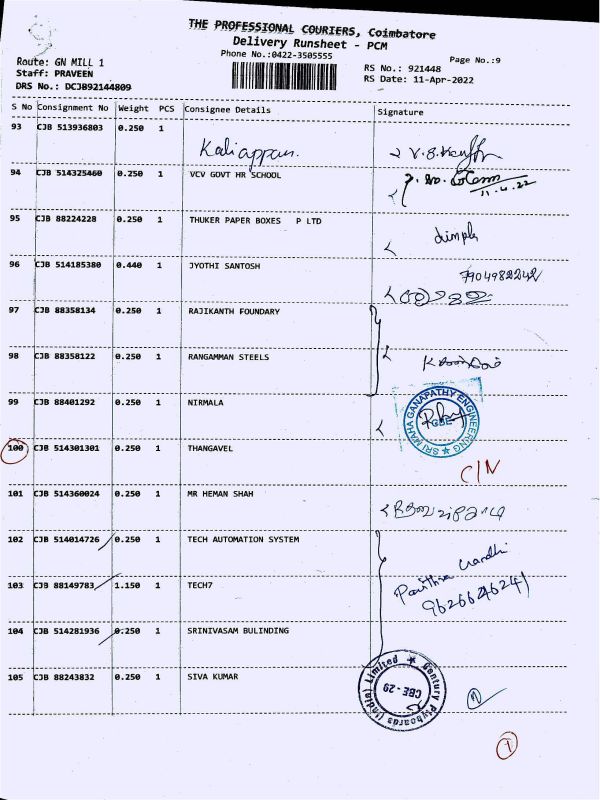 THE PROFESSIONAL COURIERS, Coimbatore
Delivery Runsheet - PCM
Phone No.:0422-3505555
Page No.:9
Route: GN MILL 1
Staff: PRAVEEN
DRS No.: DCJB92144809
RS No.: 921448
RS Date: 11-Apr-2022
S No Consignment No Weight PCS Consignee Details Signature
93 CJB 513936803 0.250 1
Kaliappan.
94 CJB 514325460 0.250 1 VCV GOVT HR SCHOOL
11.4.22
95 CJB 88224228 0.250 1 THUKER PAPER BOXES P LTD
dimple
96 CJB 514185380 0.440 1 JYOTHI SANTOSH
7904982242
97 CJB 88358134 0.250 1 RAJIKANTH FOUNDARY
98 CJB 88358122 0.250 1 RANGAMMAN STEELS
99 CJB 88401292 0.250 1 NIRMALA
SRI MAHA GANAPATHY ENGINEERING
CBE
100 CJB 514301301 0.250 1 THANGAVEL
C/N
101 CJB 514360024 0.250 1 MR HEMAN SHAH
102 CJB 514014726 0.250 1 TECH AUTOMATION SYSTEM
103 CJB 88149783 1.150 1 TECH7
9626624624
104 CJB 514281936 0.250 1 SRINIVASAM BULINDING
105 CJB 88243832 0.250 1 SIVA KUMAR
Century Plyboards (India) Limited
CBE - 29